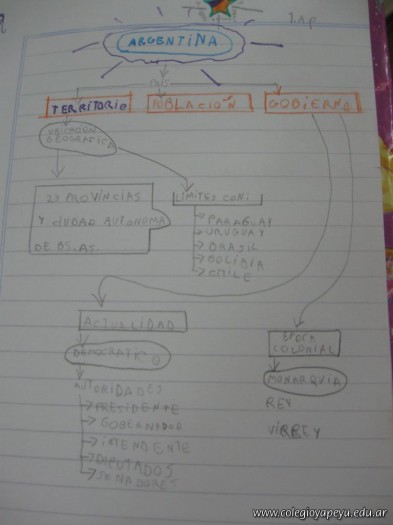 ARGENTINA
TERRITORIO
POBLACIÓN
GOBIERNO
UBICACIÓN
GEOGRAFICA
23 PROVINCIAS
Y CIUDAD AUTONOMA
DE BS.AS.
LIMITES CON:
PARAGUAY
URUGUAY
BRASIL
BOLIBIA
CHILE
ACTUALIDAD
DEMOCRATICO
AUTORIDADES
PRESIDENTE
GOBERNADOR
INTENDENTE
DIPUTADOS
SENADORES
EPOCA
COLONIAL
MONARQUIA
REY
VIRREY
www.colegioyapeyu.edu.ar